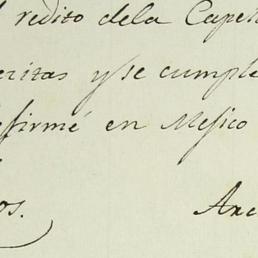 redito dela Cape
eritas y se cumple
firmé en Mesico
os. An